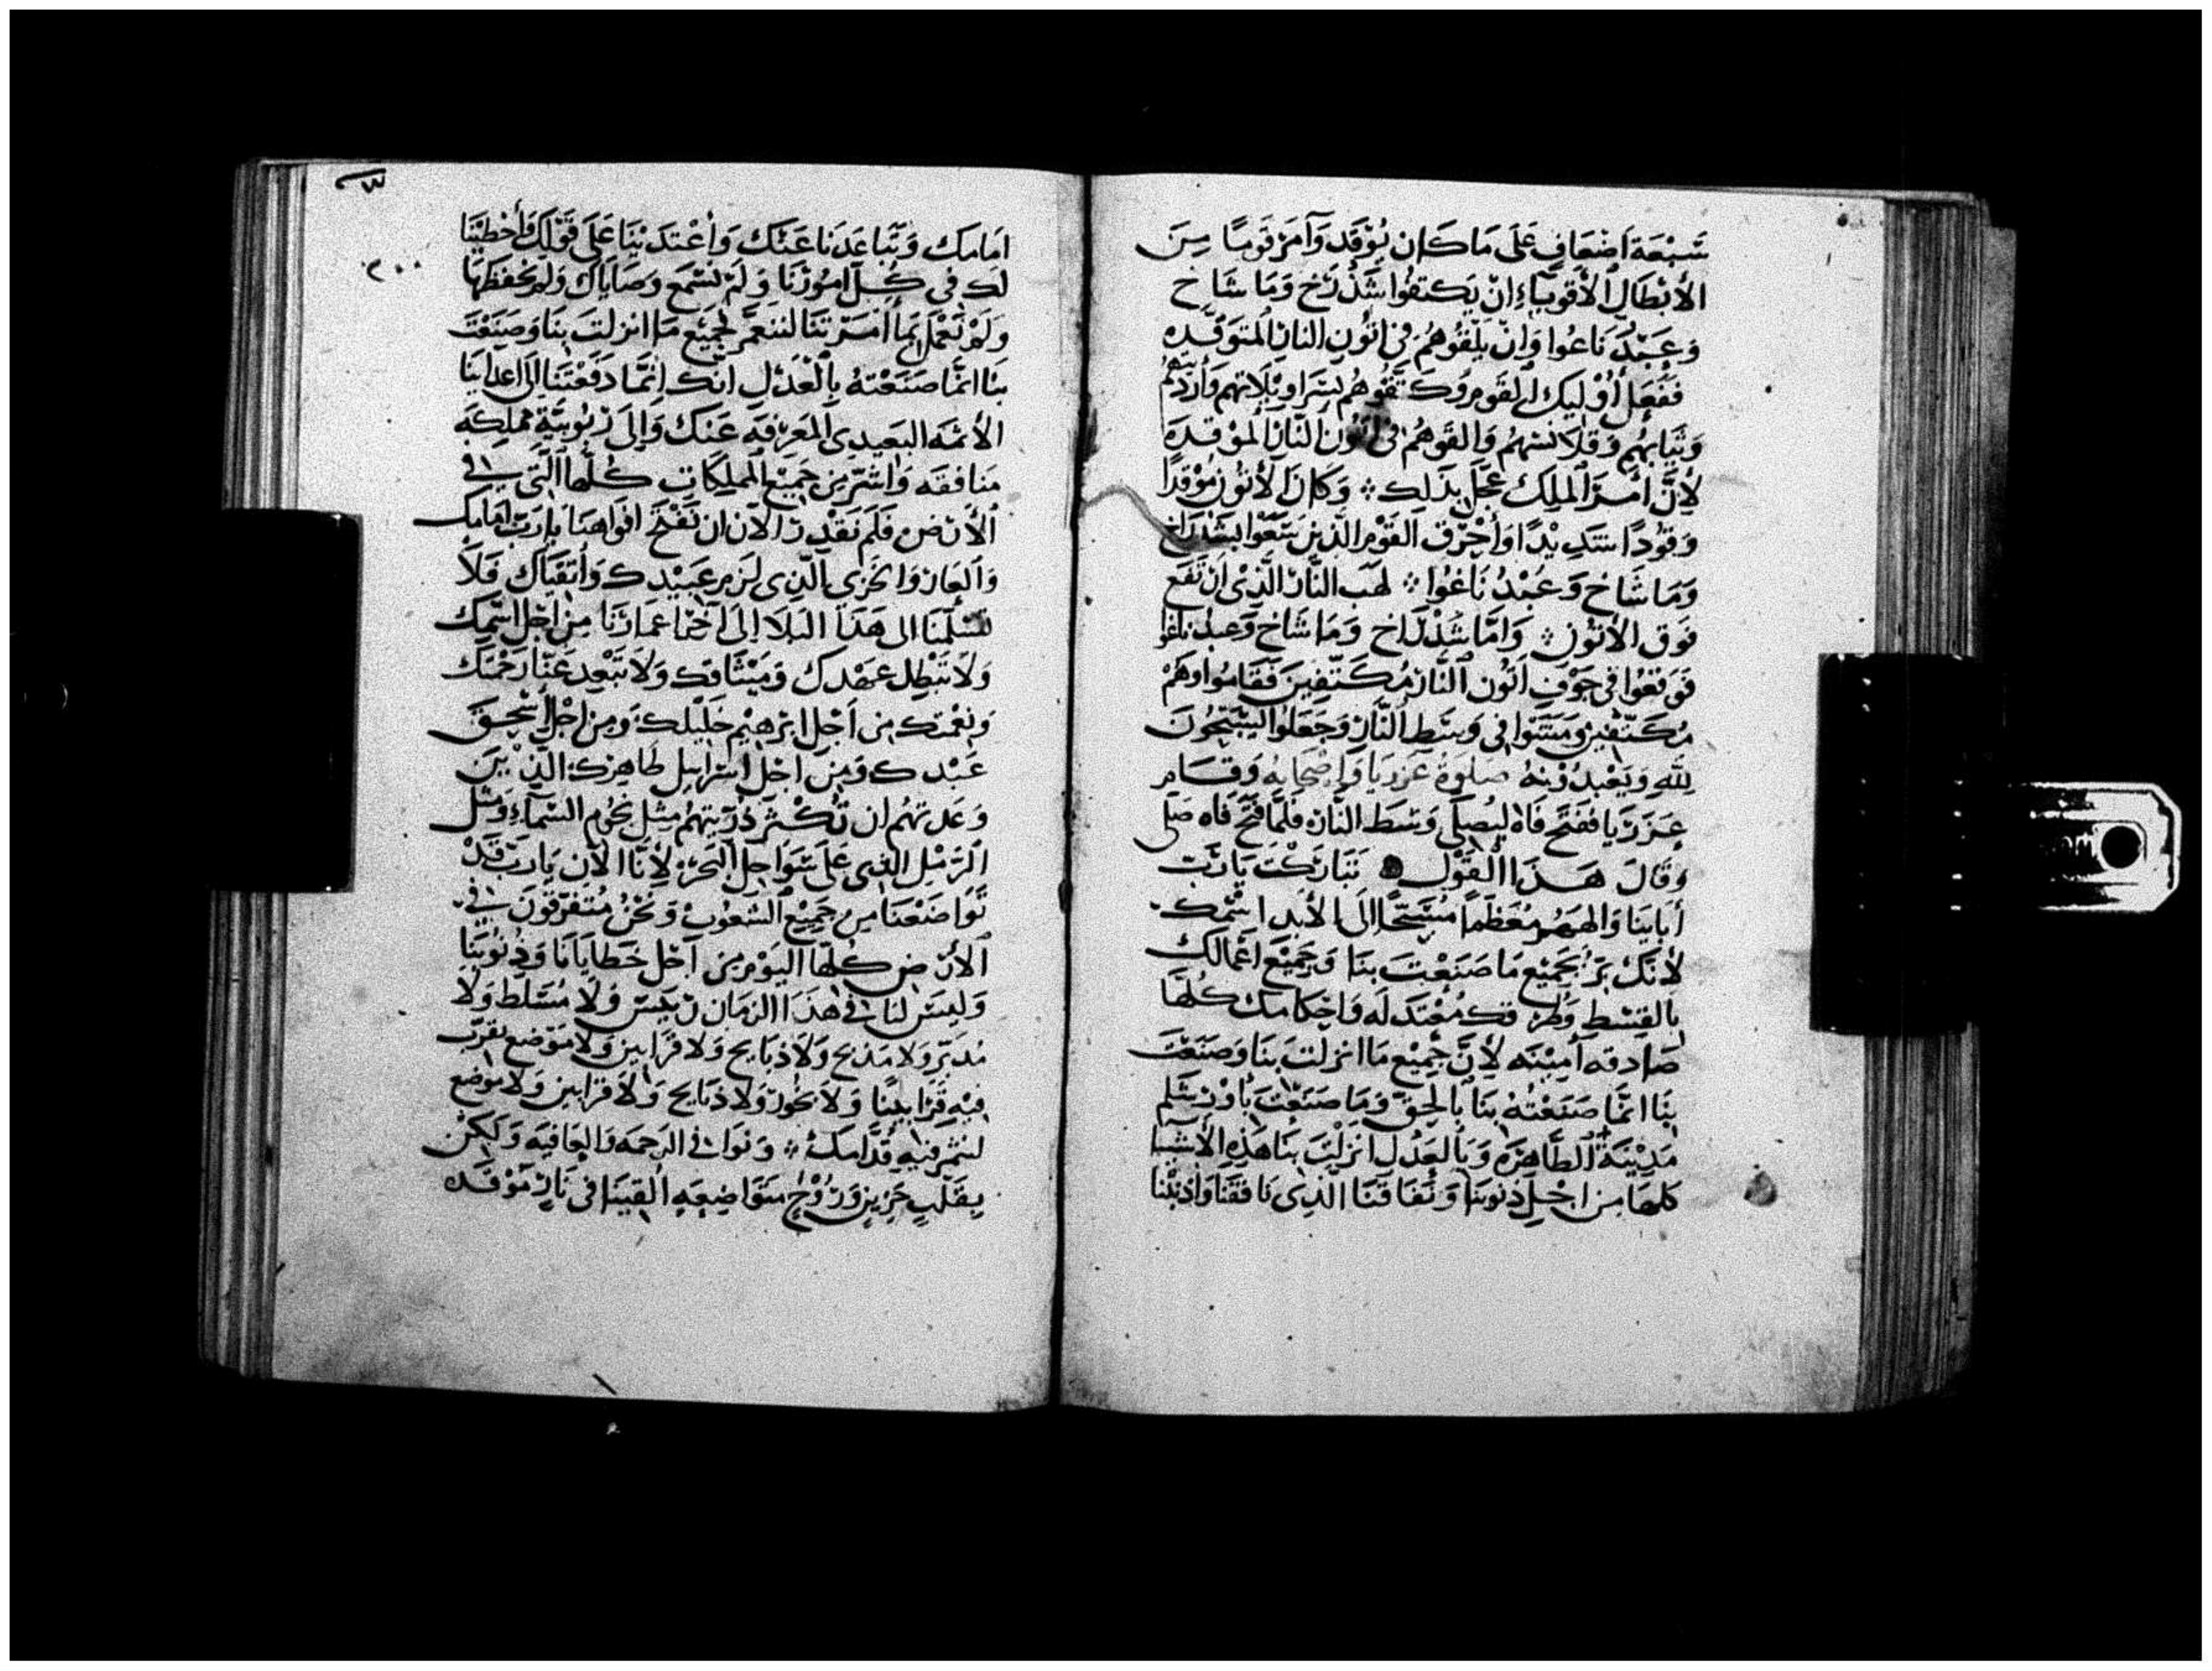 سَبْعَة اَضْعَافٍ عَلَى مَا كَان يُوْقَد وَآمَرَ قَومًا مِنَ
الأَبْطَالِ الأَقْوِيَاءِ انْ يَكتفُوا شَدْرَخ وَمَا شَاخ
وَعَبْدَ نَاغوا وَانْ يَلْقُوهُم في اتُونِ النارِ المتَوَقِّده
فَفَعَل أُوْلَيِك القَوم وَكَتَّفُوهُم بسَرَاوِيْلاَتهم وَأرْدِيَتهُم
وَثِيَابهُم وَقَلاَنسهُم وَالقَوهُم في اتُون النَّارِ المُوْقدَه
لأِنَّ أمْرَ المَلِك عَجَّل بذَلِك ܀ وَكَانَ الأتُون مُوْقدًا
وَقُودًا شَدِيْدًا وَأحْرَق القَوْم الَّذين سَعَوْا بشَدْرَاخ
وَمَا شَاخ وَعَبْدُ نَاغُوا ܀ لهَب النَّار الَّذِيْ ارْتَفَع
فَوق الأتُون ܀ وَامَّا شَدْرَاخ وَمَا شَاخ وَعبدُ ناغوا
فَوَقعُوا في جَوْفِ اتُون النَّار مُكَتّفِينَ فَقَامُوا وَهُمْ
مُكَتّفِين وَمَشَوْا في وَسَطِ النَّارِ وَجَعَلُوا يُسَبّحُونَ
للهِ وَيَعْبدُوْنهُ صَلوةُ عَزَريَا وَاصْحَابِهِ وَقَام
عَزَرْيَا فَفتَح فَاهُ ليُصَلِّي وَسَط النَّار فلمَّا فَتح فَاه صَلى
وَقَال هَذَا القَوْل تَبَارَكْتَ يَا رَبَّ
أبَايِنَا وَالهَهُم مُعَظَّمًا مُسَبَّحًا الَى الأبد اسْمك
لأنَّك بَرٌّ بجَمِيْع مَا صَنَعْتَ بنَا وَجَمِيْع اعْمَالك
بالقِسْطِ وَطُرُقك مُعْتَدلَه وَاحْكَامك كلّهَا
صَادقه أمِيْنَه لأِنَّ جَمِيْع مَا انزلتَ بنَا وَصَنَعْتَ
بنَا انمَّا صَنَعْتَهُ بنَا بالحَقّ وَمَا صَنَعْتَ بأوْرشَلم
مَدِيْنَة الطَّاهِرَه وَبالعَدْل انزَلْتَ بنَا هَذِه الأشْيَا
كلهَا مِن اجْلِ ذنوبنَا وَنفَاقنَا الذِى نَافَقنَا وَأذنبْنا
٣
٢٠٠
امَامك وَتبَاعَدنَا عَنْك وَاعْتدَيْنَا عَلَى قَوْلِكَ وَأخْطَيْنَا
لك في كُلّ امُوْرنَا وَلَمْ نسْمَع وَصَايَاك وَلَمْ نحْفظهَا
وَلَمْ نَعْمَل بمَا أمَرْتنَا لننعَم بجَمِيْع مَا انزلتَ بنَا وَصَنَعْتَ
بنَا انمَّا صَنَعْتَهُ بالْعَدْل انك انمَّا دَفعْتَنَا الَى اعدَاينَا
الأثمَه البَعِيدِي المَعرفَه عَنك وَالى رُبُوبيَّةِ مَملكَه
مَنَافقَه وَاشَرّ مِن جَمِيْع المملكَاتِ كُلّهَا الَّتي في
الأرْض فَلَم نَقْدِر الآن ان نَفْتَحَ افوَاهنَا يا رَبّ امَامك
وَالعَار وَالخَزْى الَّذِى لَزم عَبيْدك وَأتقيَاك فَلاَ
تسْلمْنَا الى هَذا البَلاَ الَى آخر اعْمَارنَا مِن اجْل اسْمك
وَلاَ تبْطِل عَهْدك وَمِيْثَاقك وَلاَ تبْعِد عَنَّا رَحْمَتك
وَنعْمتك مِن اَجْل ابْرَهيْم خَليْلك وَمِن اجْل اسْحق
عَبْدك وَمِن اجْل اسْرَايل طَاهِرك الَّذِيْنَ
وَعَدتهُم ان تُكْثرَ ذُرّيتهُم مِثل نجُوم السَّمَآءِ وَمثل
الرّمْل الذِى عَلَى سَوَاحِل البَحْر لأِنَّا الآن يَا رَبّ قَدْ
تَوَاضَعْنَا مِن جَمِيْع الشعُوبْ وَنحْنُ مُتَفَرّقُونَ في
الأرْض كُلّهَا اليَوْم مِن اَجْل خَطَايَانَا وَذنُوبنَا
وَليْسَ لنَا في هَذَا الزمَان رَيّسٌ وَلاَ مُسَلط وَلاَ
مُدَبّر وَلاَ مَذبَح وَلاَ ذبَايح وَلا قرَابين وَلا مَوْضع نقرّب
فيْهِ قرَابينًا وَلاَ بخُور وَلا ذبَايح وَلاَ قرَابين وَلا مَوضع
لنثمر فيْهِ قدَّامك ܀ وَنوَافي الرّحمَه وَالعَافيَه وَلكنْ
بقَلْبٍ حَزينٍ وَرُوْحٍ متوَاضِعَهِ القينَا في نَارٍ مُوْقَده